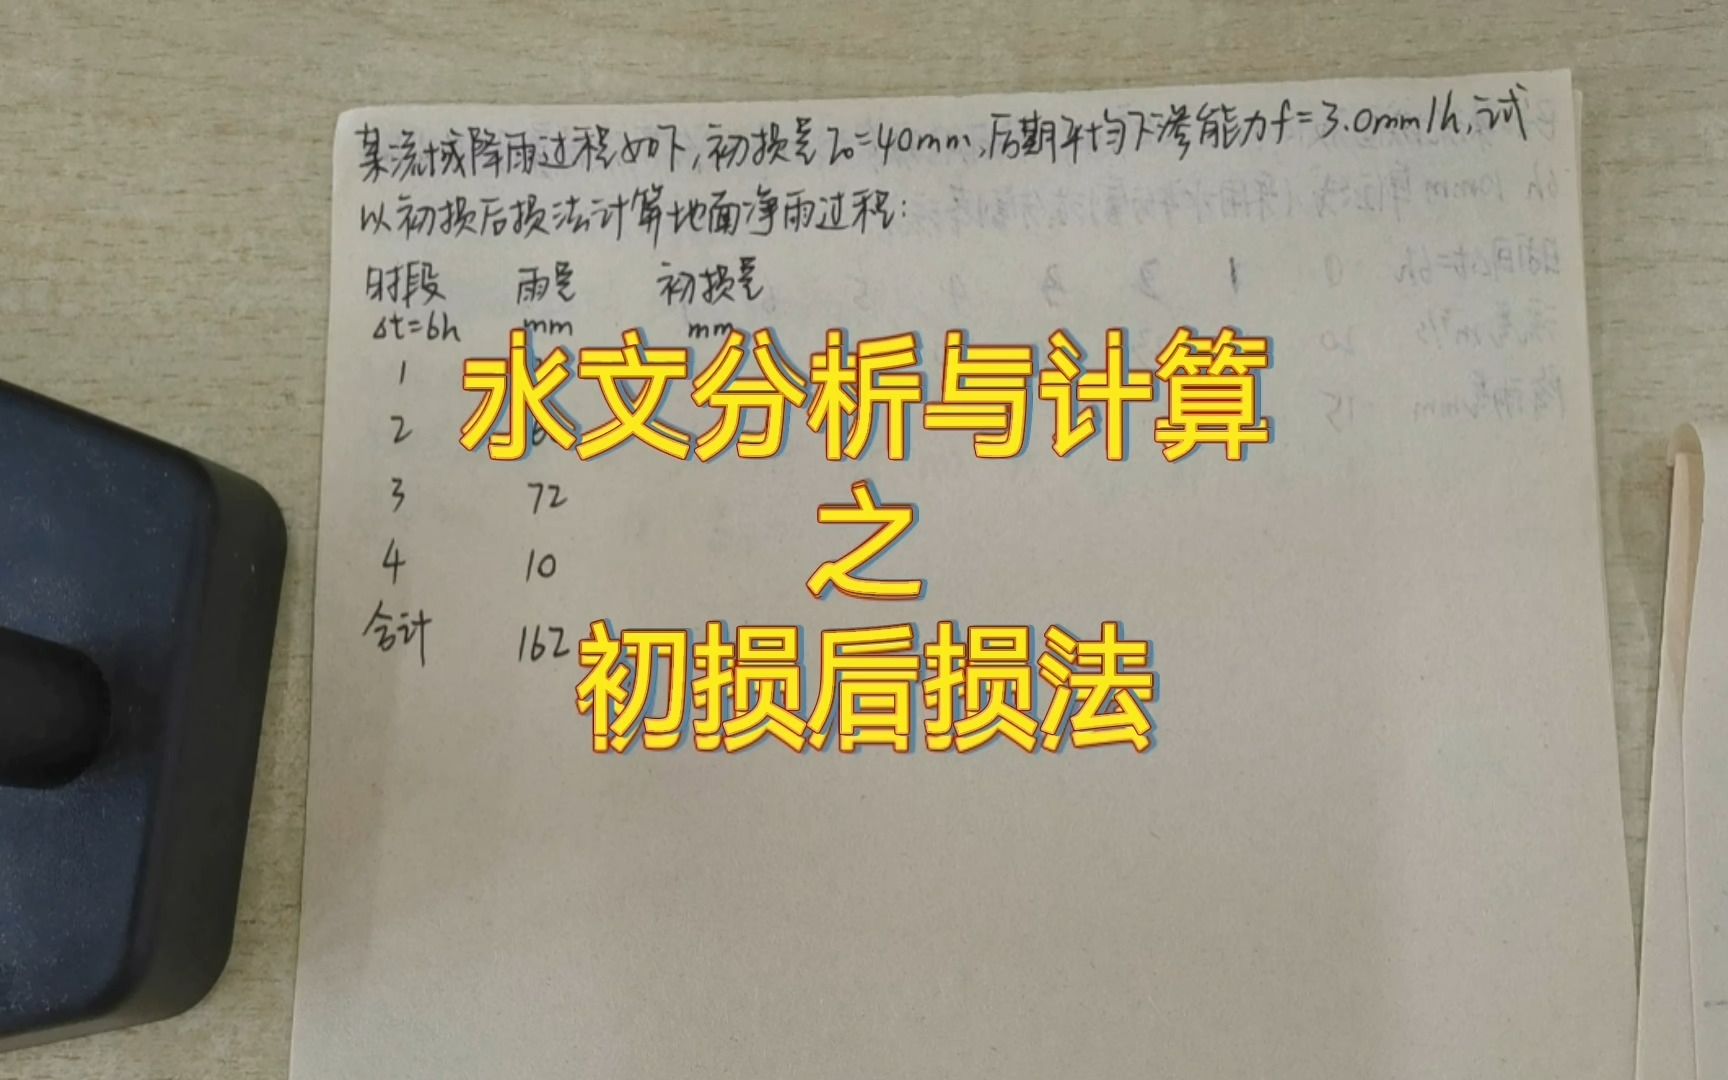 某流域降雨过程如下,初损量I₀=40mm,后期平均下渗能力f=3.0mm/h,试
以初损后损法计算地面净雨过程:
时段 雨量 初损量
Δt=6h mm mm
1
2
3 72
4 10
合计 162
水文分析与计算
之
初损后损法